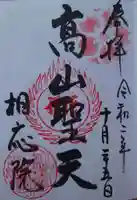 奉拝
令和二年
十月二十五日
高山聖天
相応院